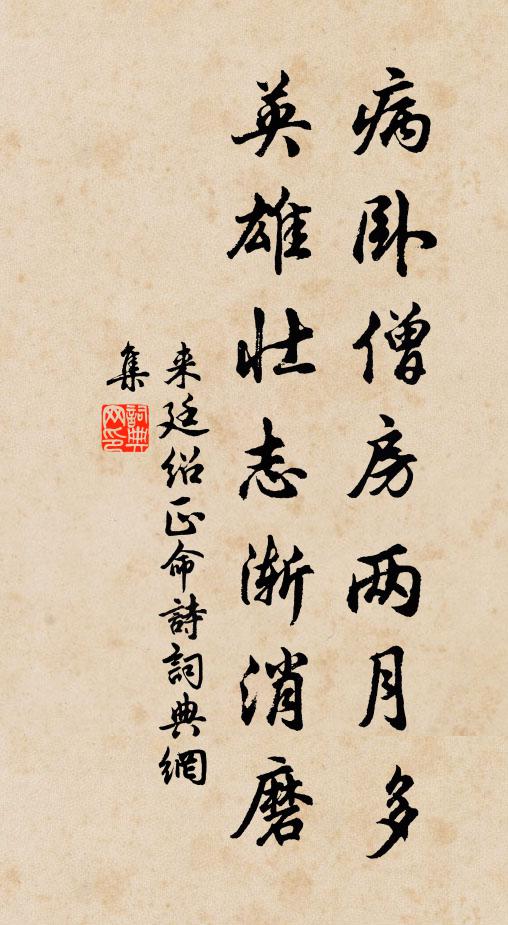 病卧僧房两月多
英雄壮志渐消磨
来廷绍正命詩詞典網
集
詞典
网印